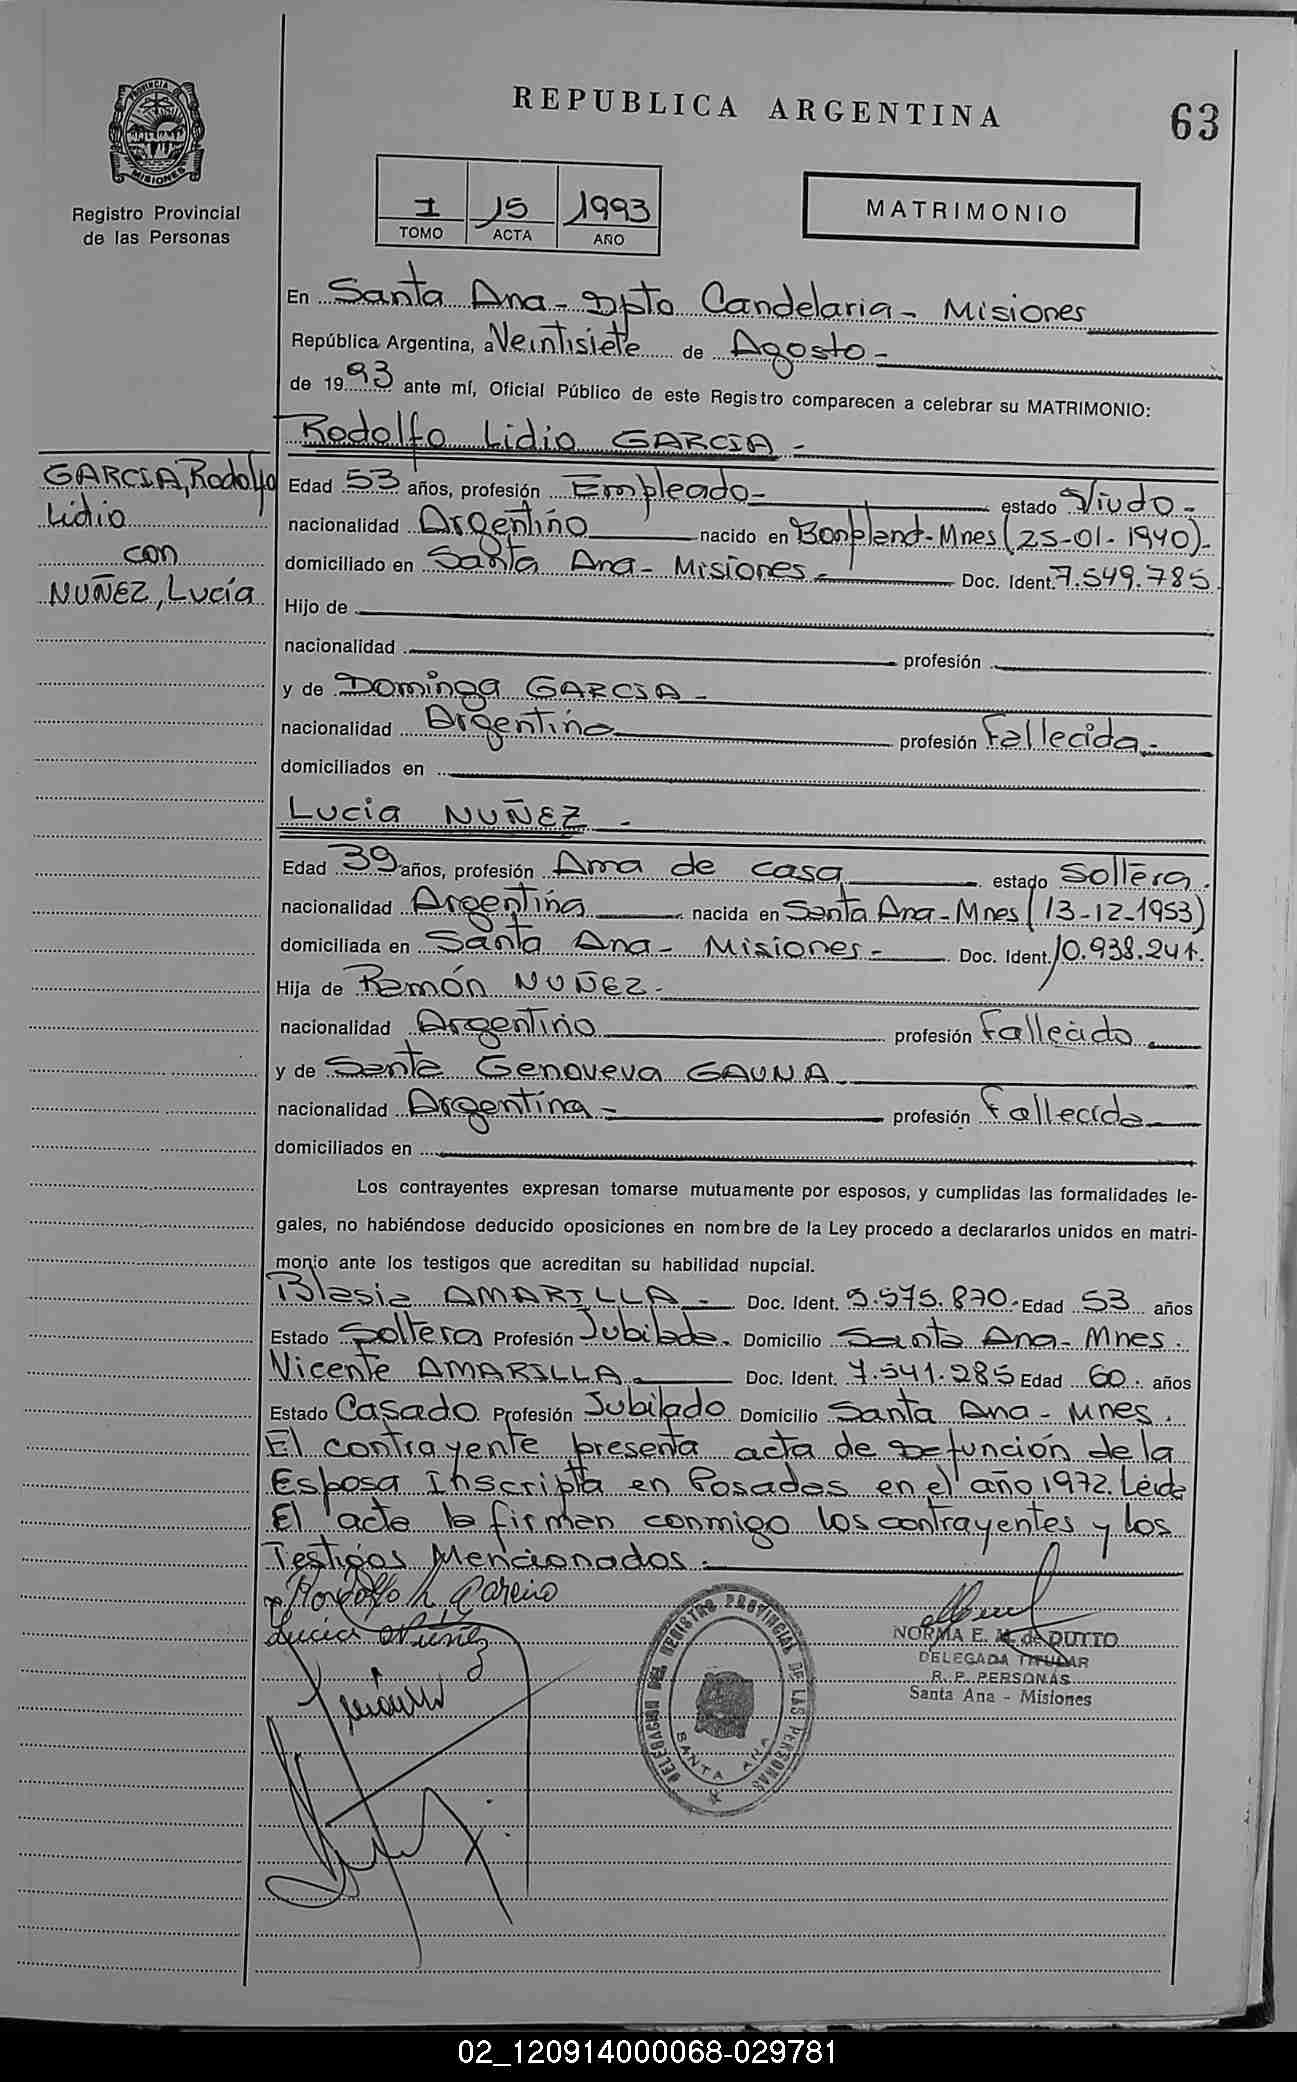 REPUBLICA ARGENTINA
63
PROVINCIA D
MISIONES
Registro Provincial
de las Personas
1 15 1993
TOMO ACTA AÑO
MATRIMONIO
En Santa Ana - Dpto Candelaria - Misiones
República Argentina, a Veintisiete de Agosto -
de 1993 ante mí, Oficial Público de este Registro comparecen a celebrar su MATRIMONIO:
Rodolfo Lidio GARCIA -
GARCIA, Rodolfo
Lidio
con
NUÑEZ, Lucía
Edad 53 años, profesión Empleado - estado Viudo -
nacionalidad Argentino nacido en Bonpland - Mnes (25-01-1940) -
domiciliado en Santa Ana - Misiones - Doc. Ident. 7.549.785
Hijo de
nacionalidad profesión
y de Dominga GARCIA -
nacionalidad Argentino profesión Fallecida -
domiciliados en
Lucia NUÑEZ -
Edad 39 años, profesión Ama de casa estado Soltera.
nacionalidad Argentina nacida en Santa Ana - Mnes (13-12-1953)
domiciliada en Santa Ana - Misiones - Doc. Ident. 10.938.241.
Hija de Ramón NUÑEZ -
nacionalidad Argentino profesión Fallecido
y de Santa Genoveva GAUNA
nacionalidad Argentina - profesión Fallecida
domiciliados en
Los contrayentes expresan tomarse mutuamente por esposos, y cumplidas las formalidades le-
gales, no habiéndose deducido oposiciones en nombre de la Ley procedo a declararlos unidos en matri-
monio ante los testigos que acreditan su habilidad nupcial.
Blasia AMARILLA - Doc. Ident. 9.575.870 - Edad 53 años
Estado Soltera Profesión Jubilada - Domicilio Santa Ana - Mnes.
Vicente AMARILLA Doc. Ident. 7.541.285 Edad 60 años
Estado Casado Profesión Jubilado Domicilio Santa Ana - Mnes.
El contrayente presenta acta de Defunción de la
Esposa Inscripta en Posadas en el año 1972. Leida
El acta la firman conmigo los contrayentes y los
Testigos Mencionados.
Lucia Nuñez
NORMA E. M. de DUTTO
DELEGADA TITULAR
R. P. PERSONAS
Santa Ana - Misiones
DELEGACION DEL REGISTRO PROVINCIAL DE LAS PERSONAS
SANTA ANA
02_120914000068-029781